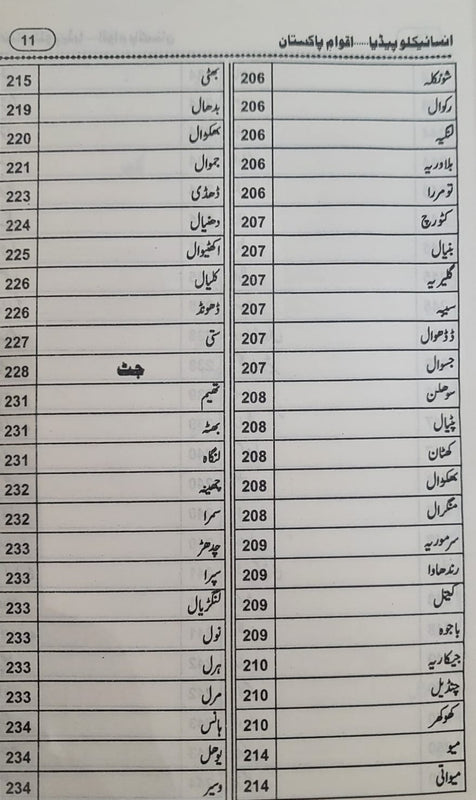 انسائیکلوپیڈیا.....اقوامِ پاکستان 11
شونکلہ 206
رکوال 206
لنگیہ 206
بلاوریہ 206
تومررا 206
کٹورچ 207
بنیال 207
گلیریہ 207
سیپیہ 207
ڈڈھوال 207
جسوال 207
سوھلن 208
پٹیال 208
کھٹان 208
بھکوال 208
منگرال 208
سرموریہ 209
رندھاوا 209
کیتھل 209
باجوہ 209
جیکاریہ 210
چندیل 210
کھوکھر 210
میو 214
میواتی 214
بھٹی 215
بدھال 219
بھکوال 220
جموال 221
ڈھڈی 223
دھنیال 224
اکھنیوال 225
کلیال 226
ڈھونڈ 226
ستی 227
جٹ 228
تھیم 231
بھٹہ 231
لنگاہ 231
چھینہ 232
سمرا 232
چدھڑ 233
سپرا 233
لنگڑیال 233
نول 233
ہرل 233
مرل 233
ہانس 234
یوھل 234
وسیر 234